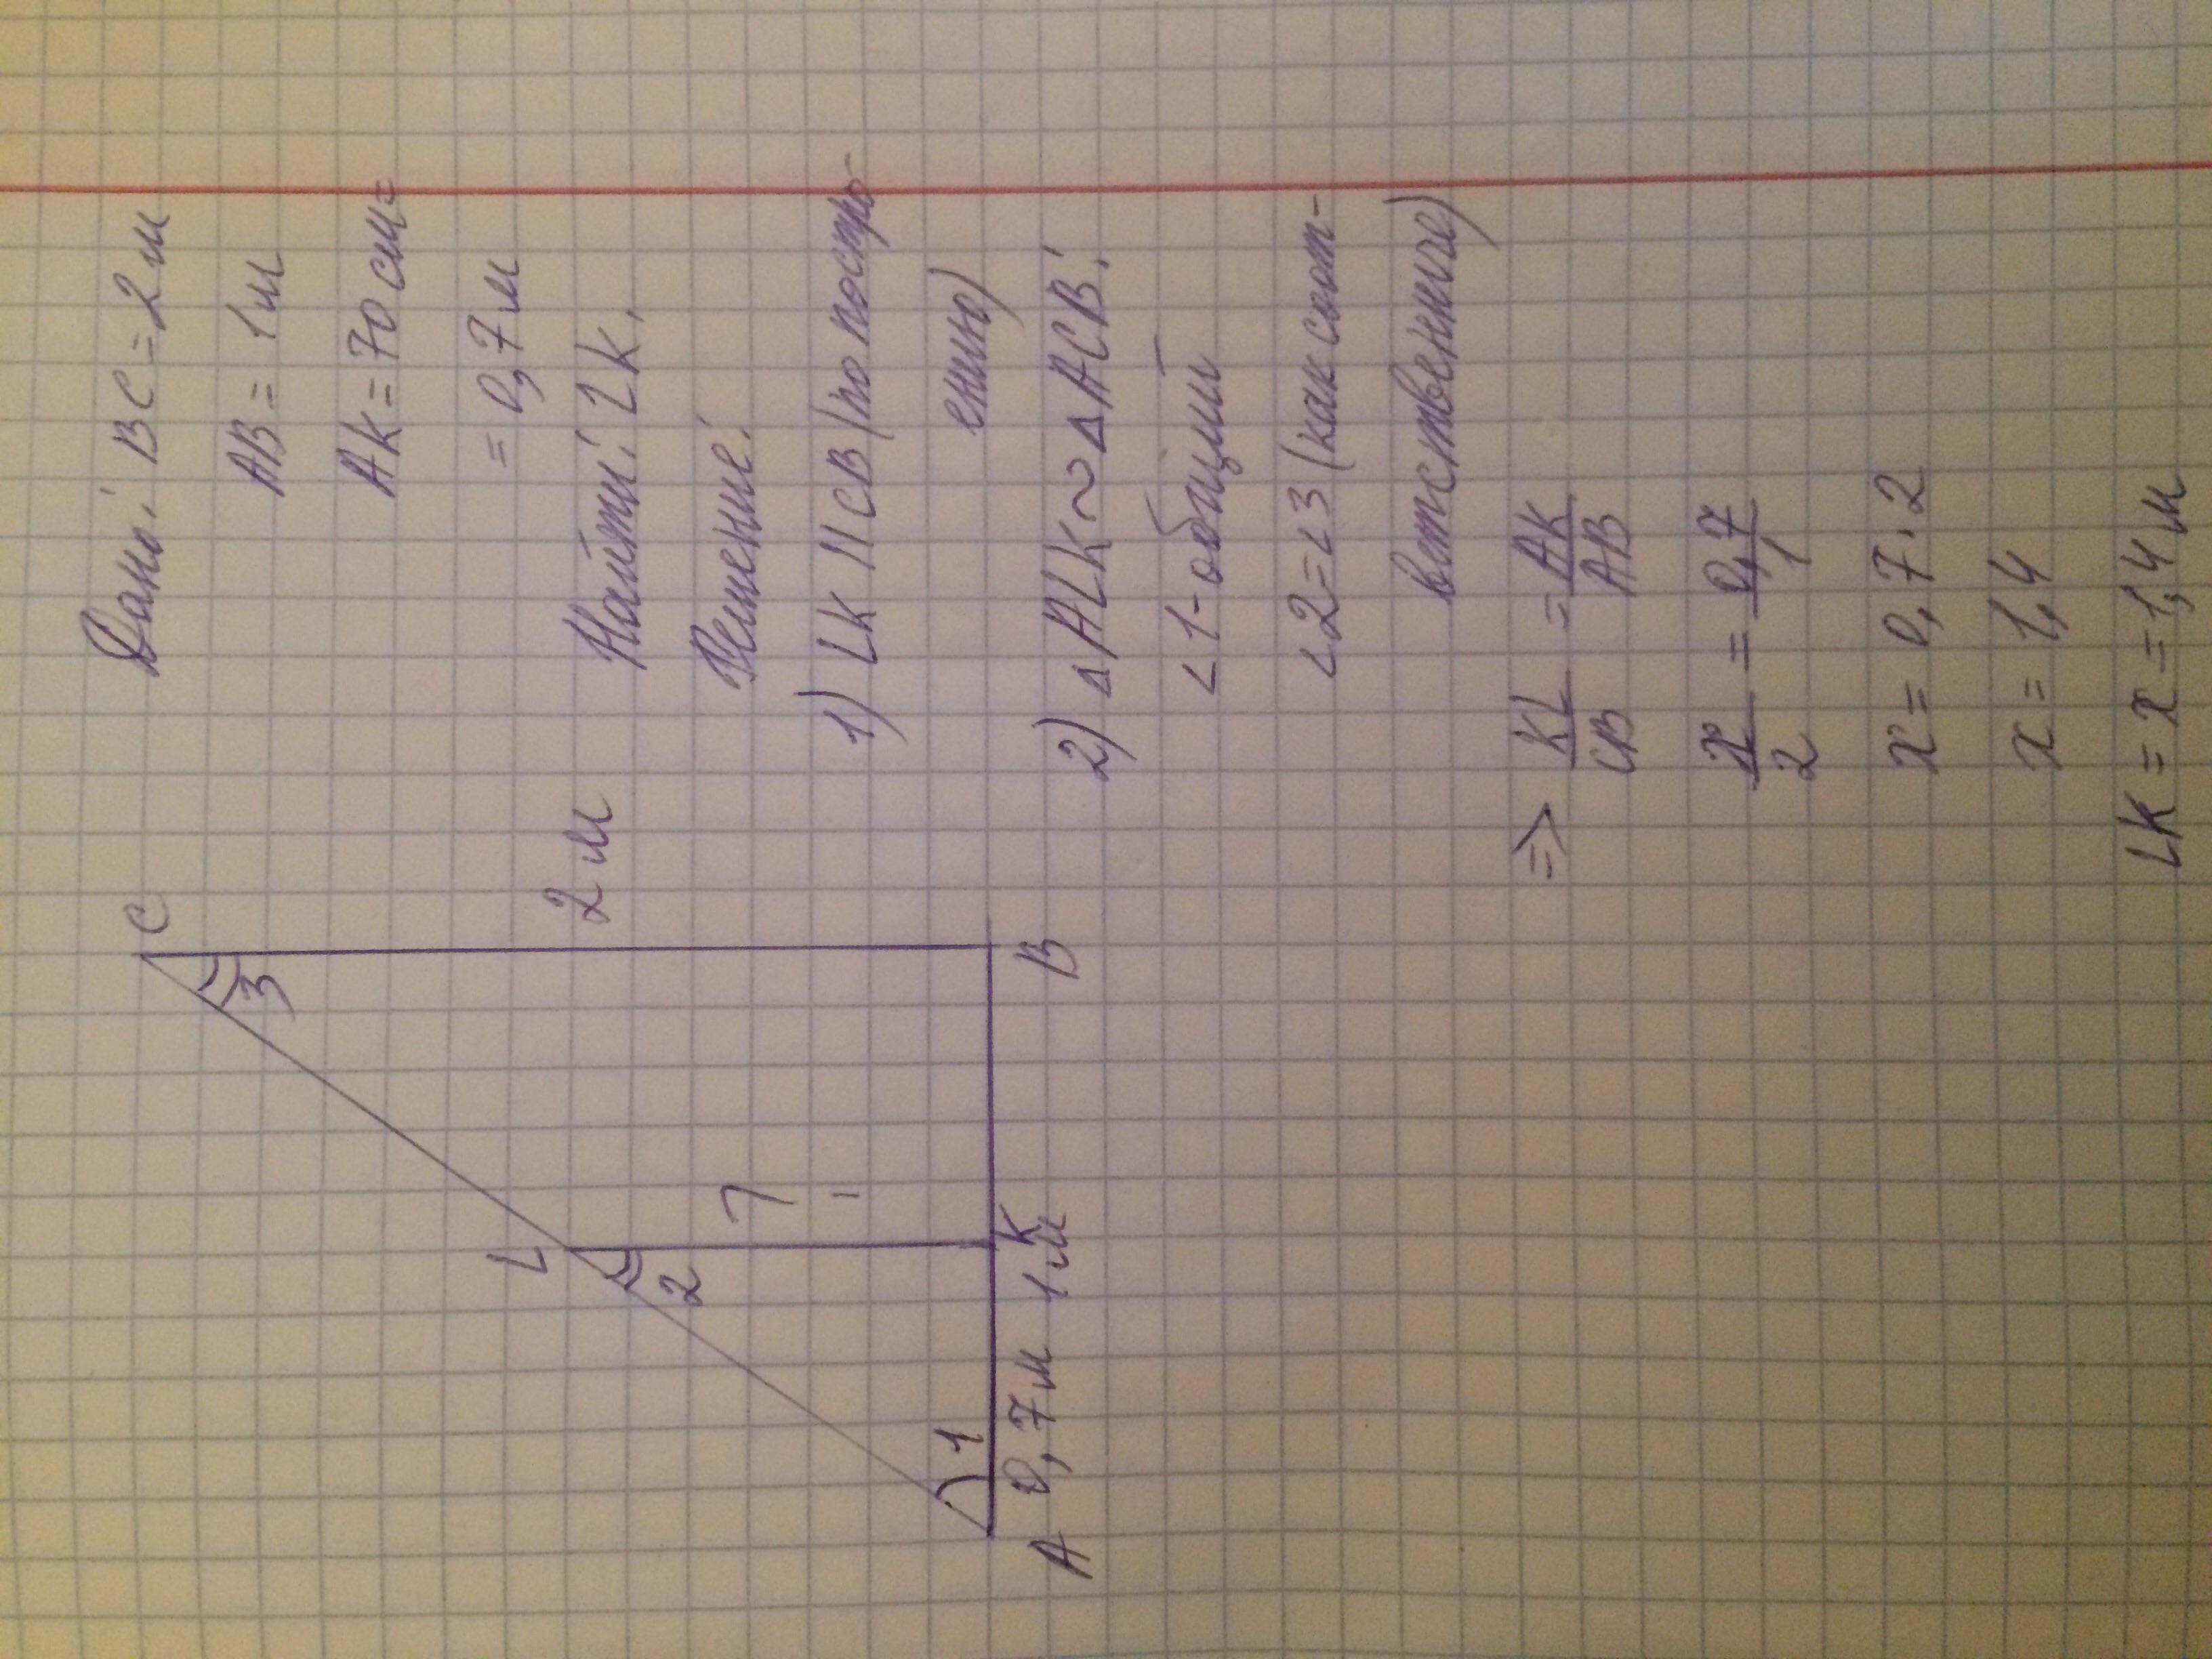 C
3
L
2
?
2 м
1
A
0,7 м
1 м
K
B
Дано: BC = 2 м
AB = 1 м
AK = 70 см =
= 0,7 м
Найти: LK.
Решение:
1) LK || CB (по постро-
ению)
2) △ALK ~ △ACB:
∠1 - общий
∠2 = ∠3 (как соот-
ветственные)
=> KL/CB = AK/AB
x/2 = 0,7/1
x = 0,7 · 2
x = 1,4
LK = x = 1,4 м